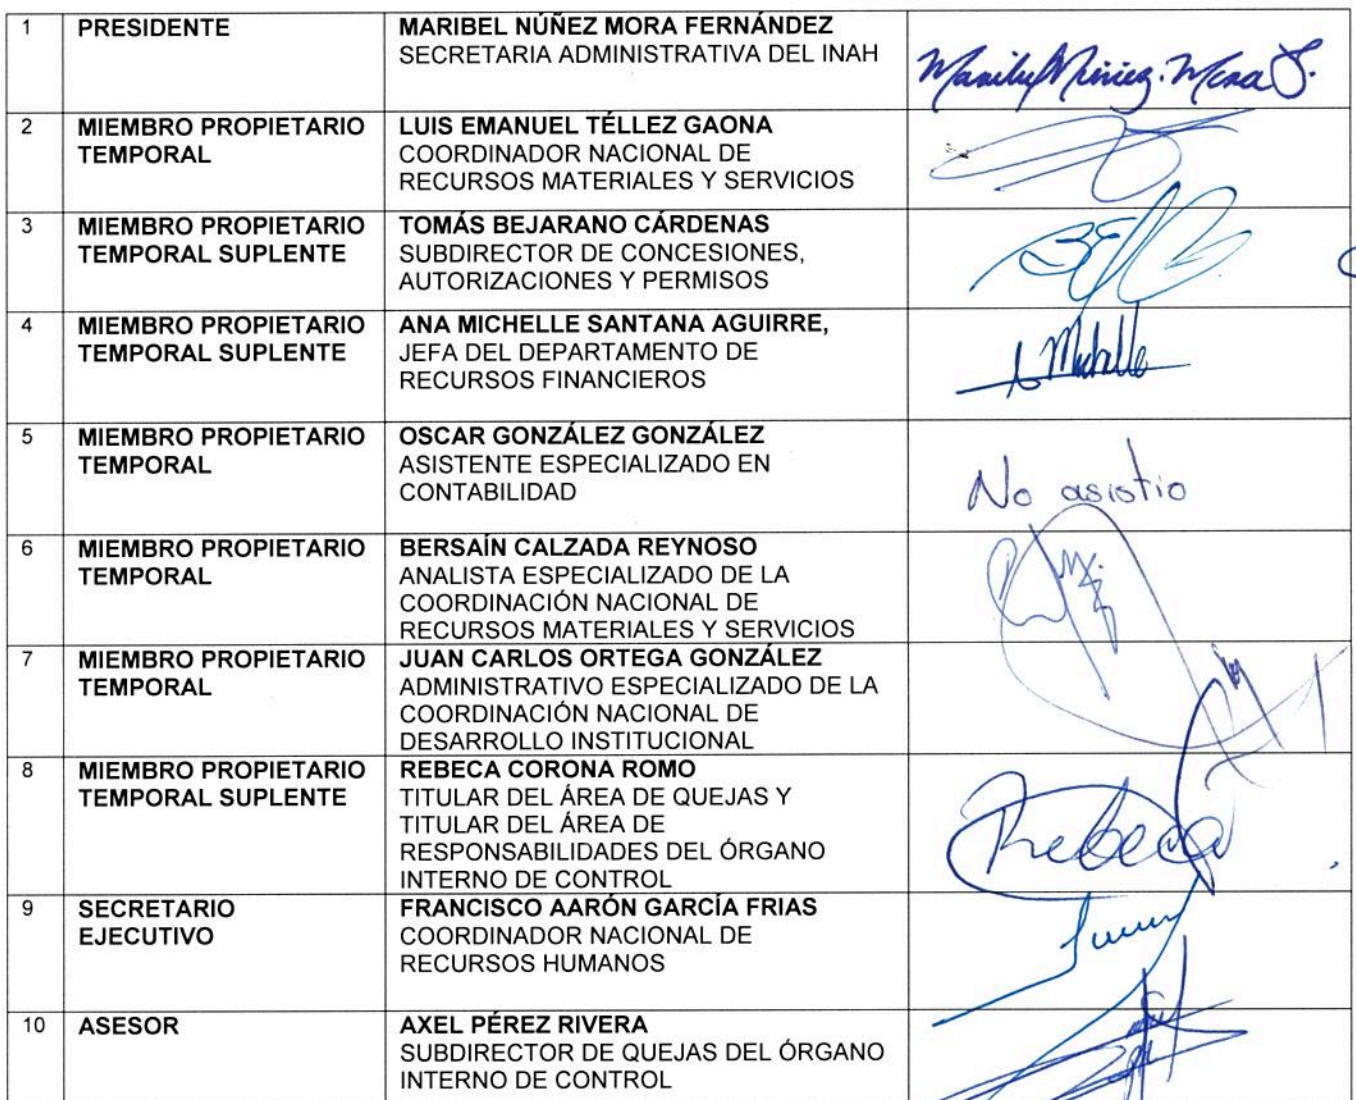 1 PRESIDENTE MARIBEL NÚÑEZ MORA FERNÁNDEZ
SECRETARIA ADMINISTRATIVA DEL INAH
2 MIEMBRO PROPIETARIO LUIS EMANUEL TÉLLEZ GAONA
TEMPORAL COORDINADOR NACIONAL DE
RECURSOS MATERIALES Y SERVICIOS
3 MIEMBRO PROPIETARIO TOMÁS BEJARANO CÁRDENAS
TEMPORAL SUPLENTE SUBDIRECTOR DE CONCESIONES,
AUTORIZACIONES Y PERMISOS
4 MIEMBRO PROPIETARIO ANA MICHELLE SANTANA AGUIRRE,
TEMPORAL SUPLENTE JEFA DEL DEPARTAMENTO DE
RECURSOS FINANCIEROS
Michelle
5 MIEMBRO PROPIETARIO OSCAR GONZÁLEZ GONZÁLEZ
TEMPORAL ASISTENTE ESPECIALIZADO EN
CONTABILIDAD
No asistio
6 MIEMBRO PROPIETARIO BERSAÍN CALZADA REYNOSO
TEMPORAL ANALISTA ESPECIALIZADO DE LA
COORDINACIÓN NACIONAL DE
RECURSOS MATERIALES Y SERVICIOS
7 MIEMBRO PROPIETARIO JUAN CARLOS ORTEGA GONZÁLEZ
TEMPORAL ADMINISTRATIVO ESPECIALIZADO DE LA
COORDINACIÓN NACIONAL DE
DESARROLLO INSTITUCIONAL
8 MIEMBRO PROPIETARIO REBECA CORONA ROMO
TEMPORAL SUPLENTE TITULAR DEL ÁREA DE QUEJAS Y
TITULAR DEL ÁREA DE
RESPONSABILIDADES DEL ÓRGANO
INTERNO DE CONTROL
Rebeca
9 SECRETARIO FRANCISCO AARÓN GARCÍA FRIAS
EJECUTIVO COORDINADOR NACIONAL DE
RECURSOS HUMANOS
10 ASESOR AXEL PÉREZ RIVERA
SUBDIRECTOR DE QUEJAS DEL ÓRGANO
INTERNO DE CONTROL